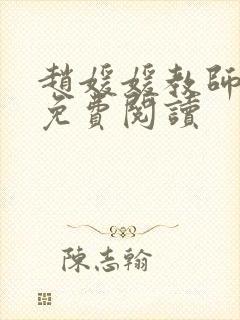 趙媛媛教師
免費閱讀
陳志翰